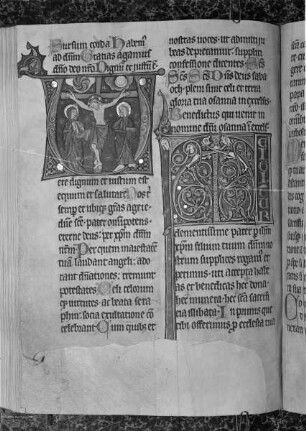 Sursum corda Habem
ad dnm Gratias agamus
dno deo nro Dignu et iustu e
ere dignum et iustum est
equum et salutare Nos t
semp et ubiq gras agere
dne sce pater omnipotens
eterne deus p xpm dnm
nrm Per quem maiestatem
tua laudant angeli ado
rant dnationes tremunt
potestates Celi celorum
q uirtutes ac beata sera
phin socia exultatione co
celebrant Cum quib et
nostras uoces ut admitti iu
beas deprecamur supplici
confessione dicentes Scs
Scs Scs Dns deus saba
oth pleni sunt celi et terra
gloria tua osanna in excelsis
Benedictus qui uenit in
nomine dni osanna i excels
TE IGITUR
clementissime pater p ihm
xpm filium tuum dnm no
strum supplices rogam et
petimus uti accepta habe
as et benedicas hec dona
hec munera hec sca sacrifi
cia illibata In primis que
tibi offerimus p ecclesia tua